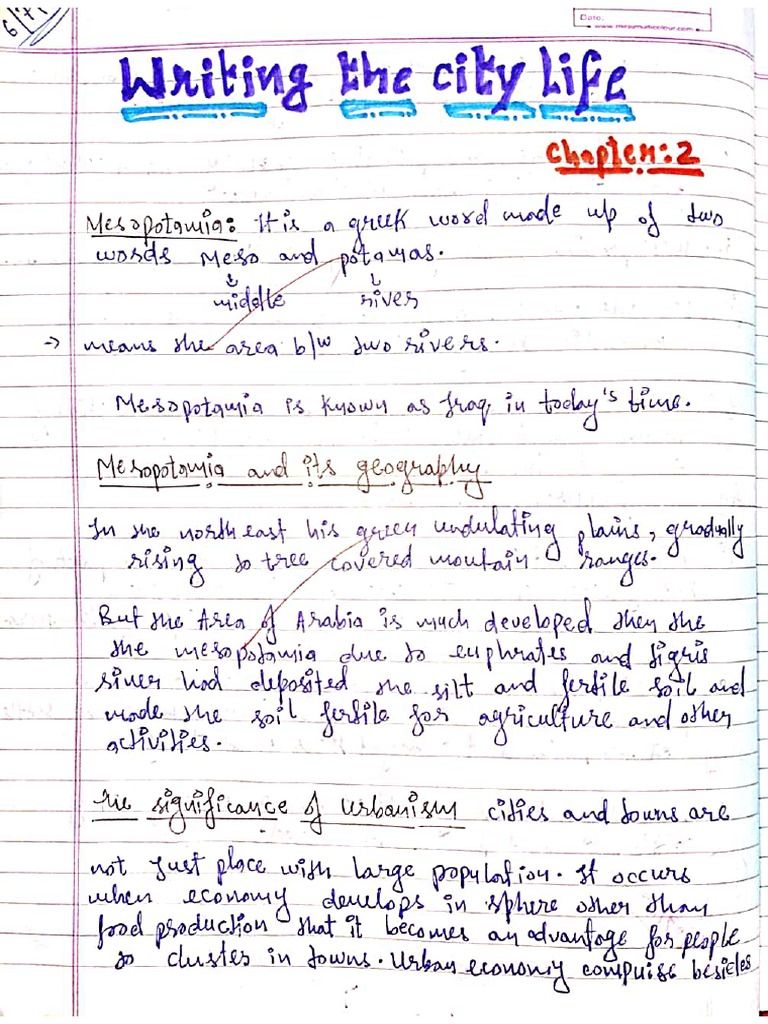 6/7/
Date:
www.mesmulticolour.com
Writing the city Life
Chapter: 2
Mesopotamia: It is a greek word made up of two
words Meso and potamas.
middle river
→ means the area b/w two rivers.
Mesopotamia is known as Iraq in today's time.
Mesopotamia and its geography
In the north east his green undulating plains, gradually
rising to tree covered moutain ranges.
But the Area of Arabia is much developed then the
the mesopotamia due to euphrates and tigris
river had deposited the silt and fertile soil and
made the soil fertile for agriculture and other
activities.
The significance of Urbanism cities and towns are
not just place with large population. It occurs
when economy develops in sphere other than
food production that it becomes an advantage for people
to cluster in towns. Urban economy compuise besides